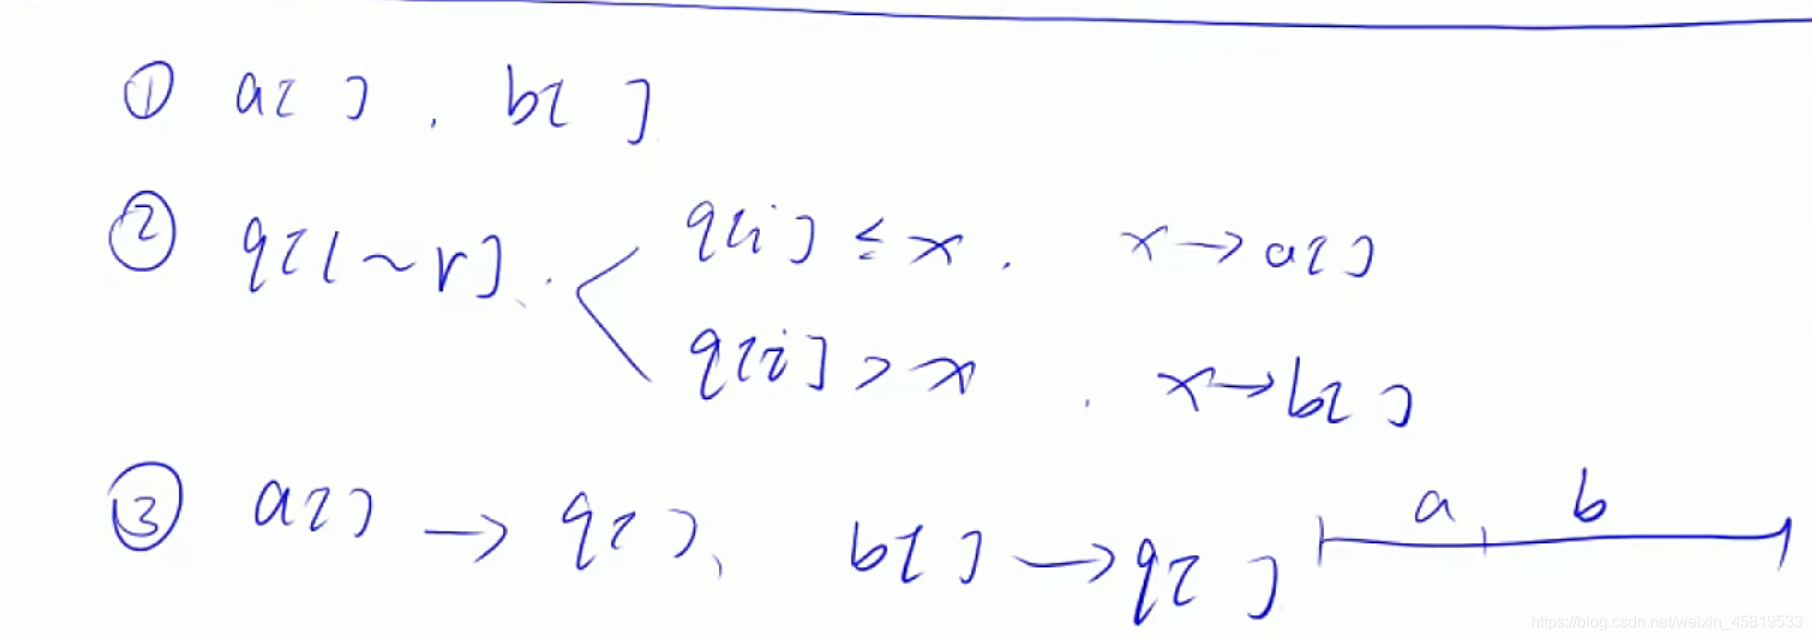 ① a[ ] , b[ ]
② q[l~r] . q[i] ≤ x . x → a[ ]
q[i] > x . x → b[ ]
③ a[ ] → q[ ] , b[ ] → q[ ] a b
https://blog.csdn.net/weixin_45819533